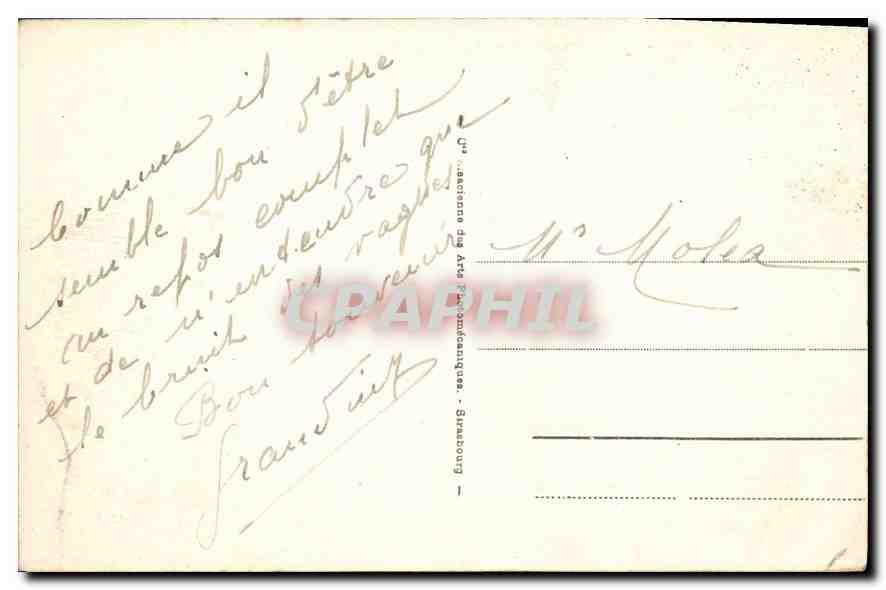 Comme il
semble bon d'être
au repos complet
et de n'entendre que
le bruit des vagues
Bon souvenir
Mrs Molea
Cie Alsacienne des Arts Photomécaniques. - Strasbourg
CPAPHIL